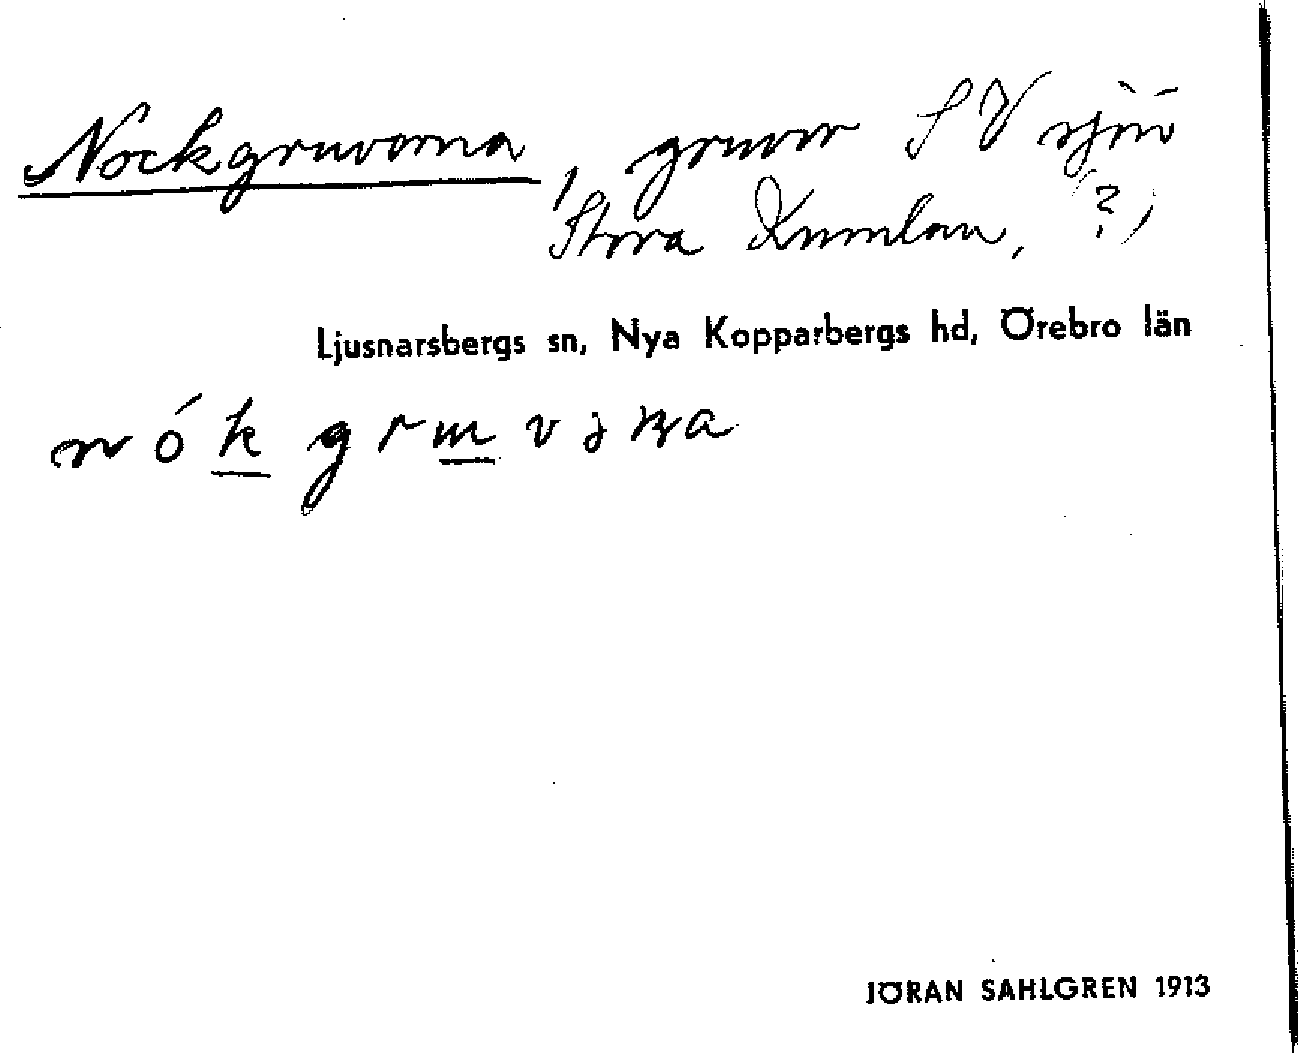 Nockgruvorna, gruvor SV sjön
Stora Kumlan, (?)
Ljusnarsbergs sn, Nya Kopparbergs hd, Örebro län
JÖRAN SAHLGREN 1913